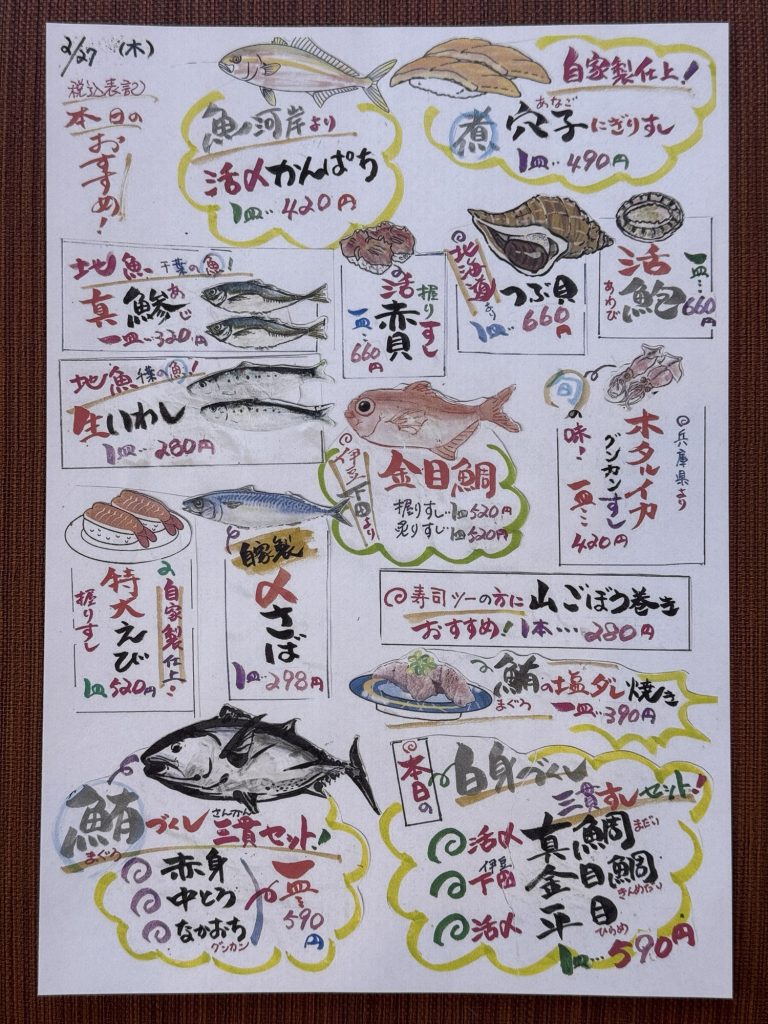 2/27 (木)
税込表記
本日の
おすすめ!
魚河岸より
活〆かんぱち
1皿…420円
自家製仕上!
煮穴子にぎりすし
あなご
1皿…490円
地魚 千葉の魚!
真鯵
あじ
一皿…320円
活赤貝
握りすし
一皿…660円
北海道より
つぶ貝
1皿…660円
活鮑
あわび
一皿…660円
地魚 千葉の魚!
生いわし
1皿…280円
伊豆下田より
金目鯛
握りすし…1皿520円
炙りすし…1皿520円
旬の味!
ホタルイカ
グンカンすし
一皿…420円
兵庫県より
自家製仕上!
特大えび
握りすし
1皿520円
自家製
〆さば
1皿…298円
寿司ツーの方に
おすすめ!
山ごぼう巻き
1本…280円
鮪の塩ダレ焼き
まぐろ
一皿…390円
鮪づくし三貫セット!
まぐろ
さんかん
赤身
中とろ
なかおち
グンカン
一皿…590円
本日の
白身づくし
三貫すしセット!
活〆 真鯛
まだい
伊豆
下田 金目鯛
きんめだい
活〆 平目
ひらめ
1皿…590円